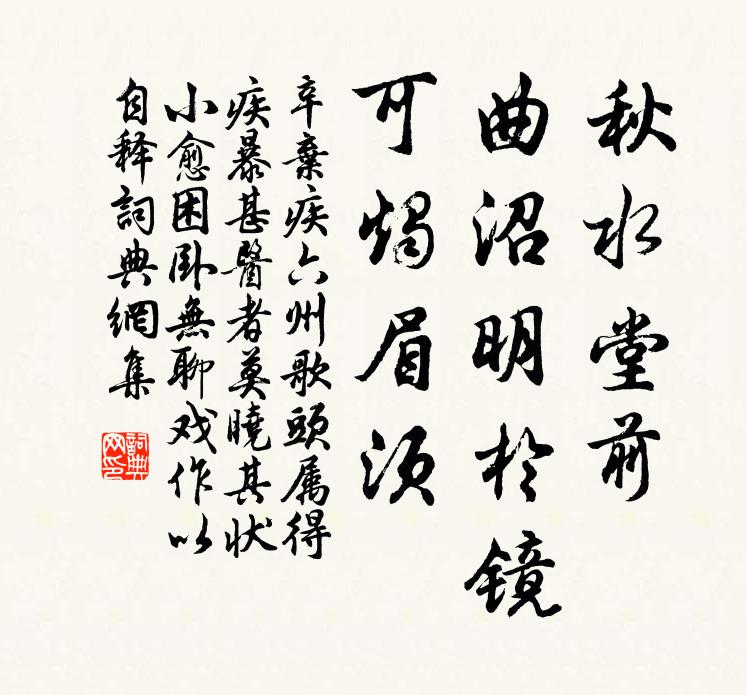 秋水堂前
曲沼明於镜
可燭眉须
辛棄疾六州歌頭属得
疾暴甚醫者莫曉其状
小愈困卧無聊戏作以
自释詞典網集
詞典网印